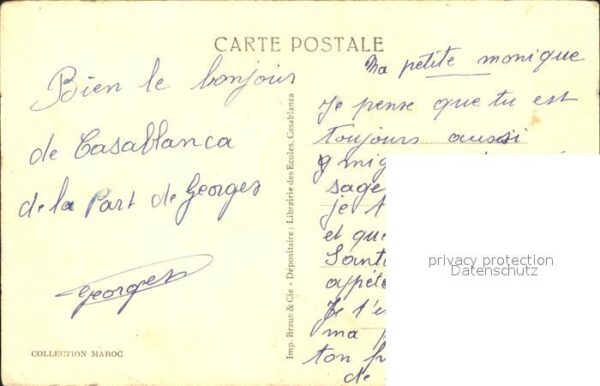 CARTE POSTALE
Bien le bonjour
de Casablanca
de la Part de Georges
Georges
COLLECTION MAROC
Imp. Braun & Cie - Dépositaire: Librairie des Ecoles, Casablanca
Ma petite monique
Je pense que tu est
toujours aussi
sage
je
et que
appét
Je t'e
ma
ton
de
privacy protection
Datenschutz